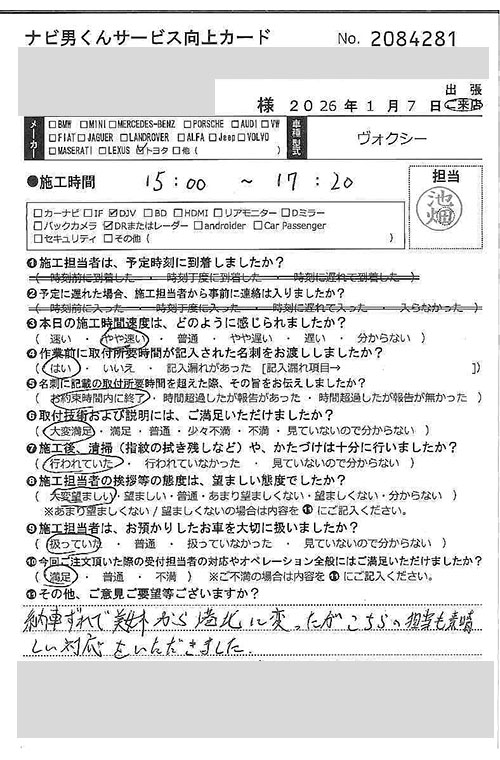 ナビ男くんサービス向上カード No. 2084281
様 2026年1月7日 出張 ご来店
メーカー □BMW □MINI □MERCEDES-BENZ □PORSCHE □AUDI □VW
□FIAT □JAGUER □LANDROVER □ALFA □Jeep □VOLVO
□MASERATI □LEXUS ☑トヨタ □他 ( )
車種型式 ヴォクシー
●施工時間 15:00 ～ 17:20
担当 池畑
□カーナビ □IF ☑DJV □BD □HDMI □リアモニター □Dミラー
□バックカメラ ☑DRまたはレーダー □androider □Car Passenger
□セキュリティ □その他 ( )
❶施工担当者は、予定時刻に到着しましたか？
( 時刻前に到着した ・ 時刻丁度に到着した ・ 時刻に遅れて到着した )
❷予定に遅れた場合、施工担当者から事前に連絡は入りましたか？
( 時刻前に入った ・ 時刻丁度に入った ・ 時刻に遅れて入った ・ 入らなかった )
❸本日の施工時間速度は、どのように感じられましたか？
( 速い ・ やや速い ・ 普通 ・ やや遅い ・ 遅い ・ 分からない )
❹作業前に取付所要時間が記入された名刺をお渡ししましたか？
( はい ・ いいえ ・ 記入漏れがあった [記入漏れ項目→ ])
❺名刺に記載の取付所要時間を超えた際、その旨をお伝えしましたか？
( お約束時間内に終了 ・ 時間超過したが報告があった ・ 時間超過したが報告が無かった )
❻取付技術および説明には、ご満足いただけましたか？
( 大変満足 ・ 満足 ・ 普通 ・ 少々不満 ・ 不満 ・ 見ていないので分からない )
❼施工後、清掃（指紋の拭き残しなど）や、かたづけは十分に行いましたか？
( 行われていた ・ 行われていなかった ・ 見ていないので分からない )
❽施工担当者の挨拶等の態度は、望ましい態度でしたか？
( 大変望ましい ・ 望ましい ・ 普通 ・ あまり望ましくない ・ 望ましくない ・ 分からない )
※あまり望ましくない / 望ましくないの場合は内容を⓫にご記入ください。
❾施工担当者は、お預かりしたお車を大切に扱いましたか？
( 扱っていた ・ 普通 ・ 扱っていなかった ・ 見ていないので分からない )
❿今回ご注文頂いた際の受付担当者の対応やオペレーション全般にはご満足いただけましたか？
( 満足 ・ 普通 ・ 不満 ) ※ご不満の場合は内容を⓫にご記入ください。
⓫その他、ご意見ご要望等ございますか？
納車ずれで美女木から港北に変ったがこちらの担当も素晴
しい対応をいただきました。